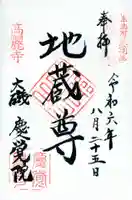 奉拝
令和六年
八月二十五日
地蔵尊
高麗寺
大磯 慶覚院